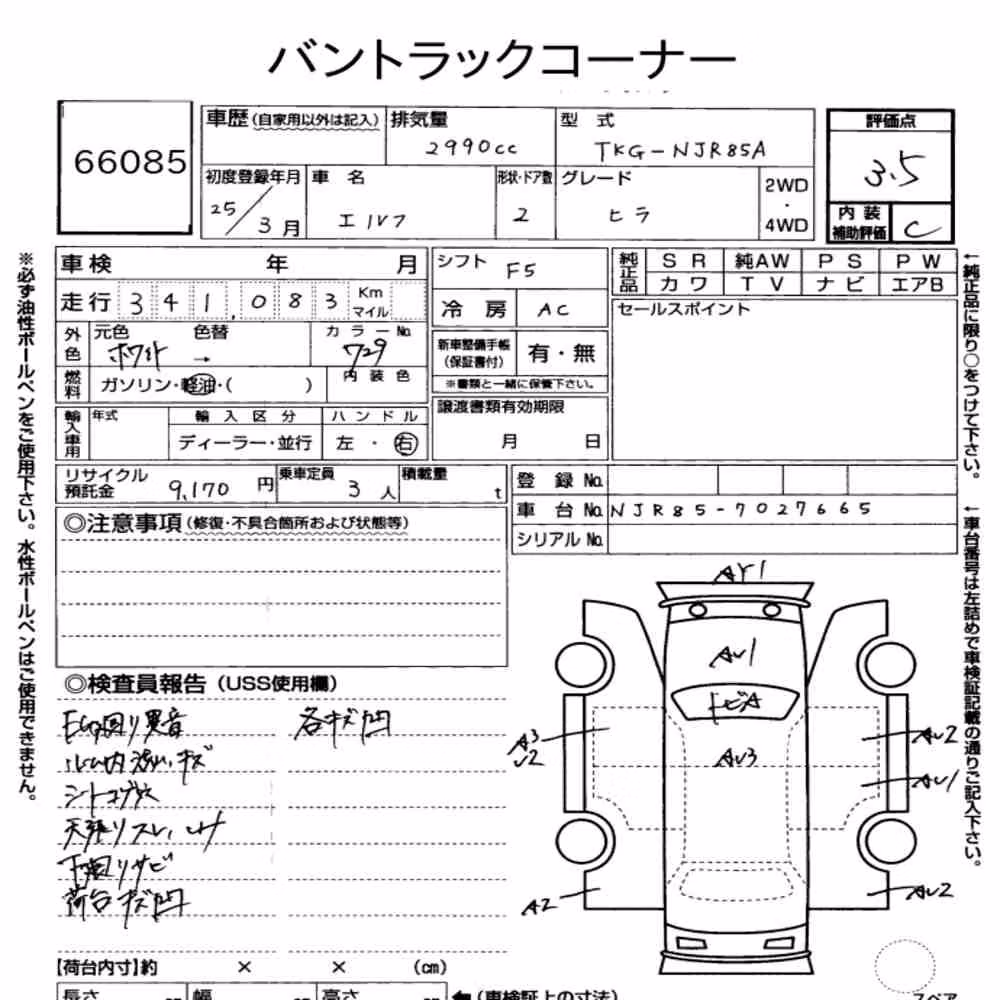 バントラックコーナー
66085
車歴(自家用以外は記入)
排気量
2990cc
型 式
TKG-NJR85A
評価点
3.5
初度登録年月
25/3月
車 名
エルフ
形状・ドア数
2
グレード
ヒラ
2WD
・
4WD
内 装
補助評価
C
※必ず油性ボールペンをご使用下さい。水性ボールペンはご使用できません。
車検 年 月
走行 341,083 Km
マイル
外色
元色 色替
ホワイト →
カラーNo.
729
燃料
ガソリン・軽油・( )
内装色
輸入車用
年式
輸入区分
ディーラー・並行
ハンドル
左・右
シフト F5
冷 房 AC
新車整備手帳
(保証書付)
有・無
※書類と一緒に保管下さい。
譲渡書類有効期限
月 日
純正品
SR 純AW PS PW
カワ TV ナビ エアB
セールスポイント
←純正品に限り○をつけて下さい。
リサイクル
預託金 9,170 円
乗車定員
3 人
積載量
t
登 録 No.
車 台 No. NJR85-7027665
シリアル No.
←車台番号は左詰めで車検証記載の通りご記入下さい。
◎注意事項(修復・不具合箇所および状態等)
◎検査員報告(USS使用欄)
EG回り異音
各キズ凹
ルーム内汚れ・キズ
シートコゲ穴
天張りスレ
下回りサビ
荷台キズ凹
AY1
AU1
トビA
AU3
A3
U2
AU2
AU1
A2
AU2
【荷台内寸】約 × × (cm)
長さ
幅
高さ
(車検証上の寸法)
スペア